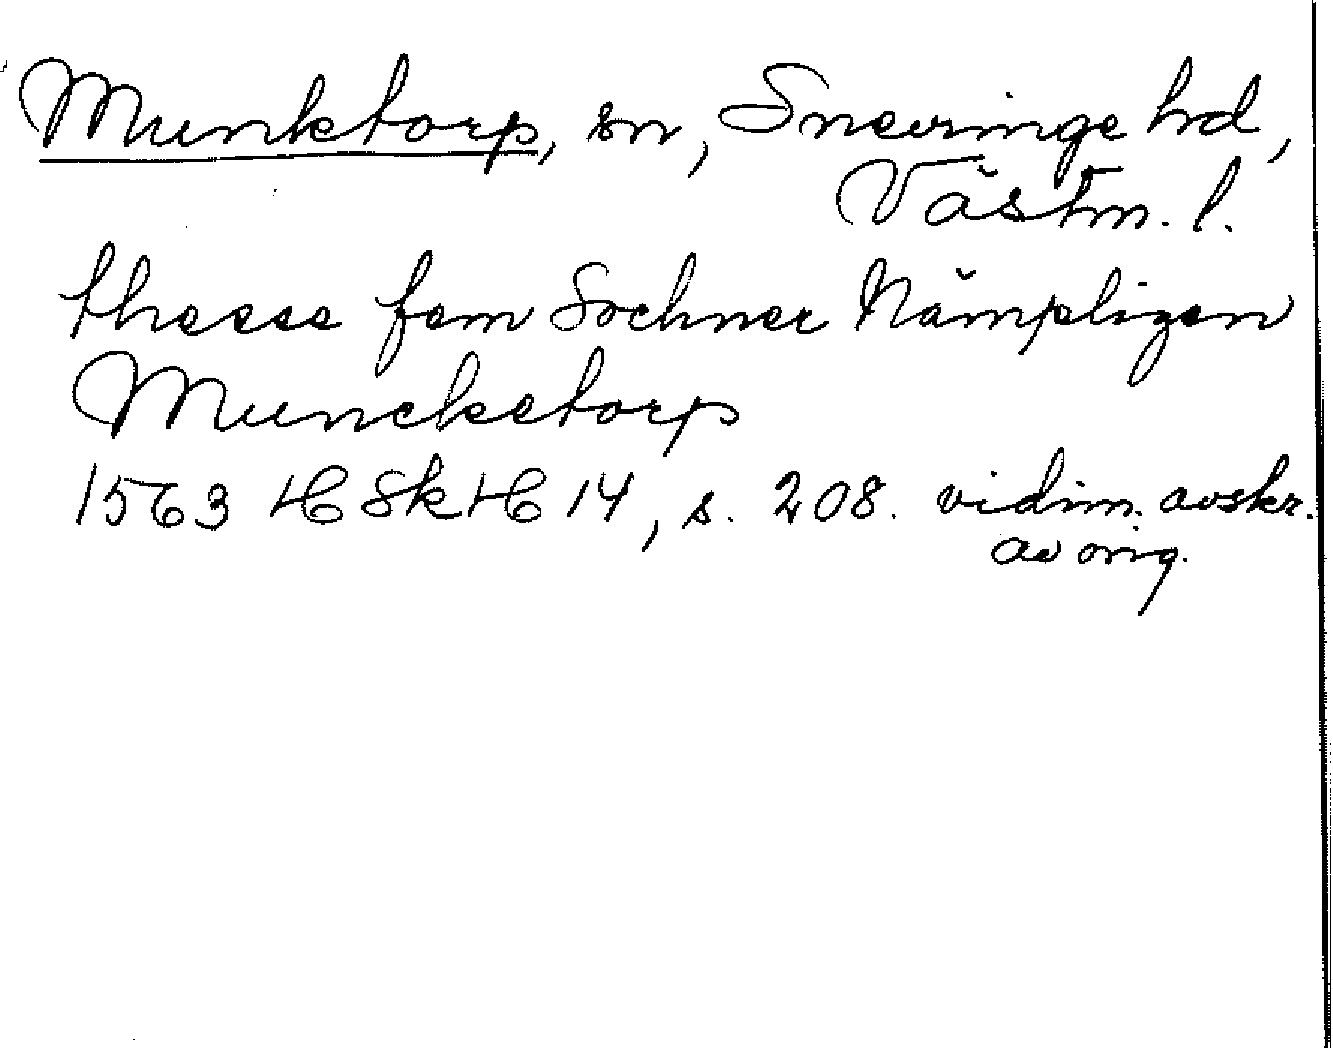 Munktorp, sn, Snevringe hd,
Västm. l.
thesse fem Sochner Nämpligen
Muncketorp
1563 HSkH 14, s. 208. vidim. avskr.
av orig.